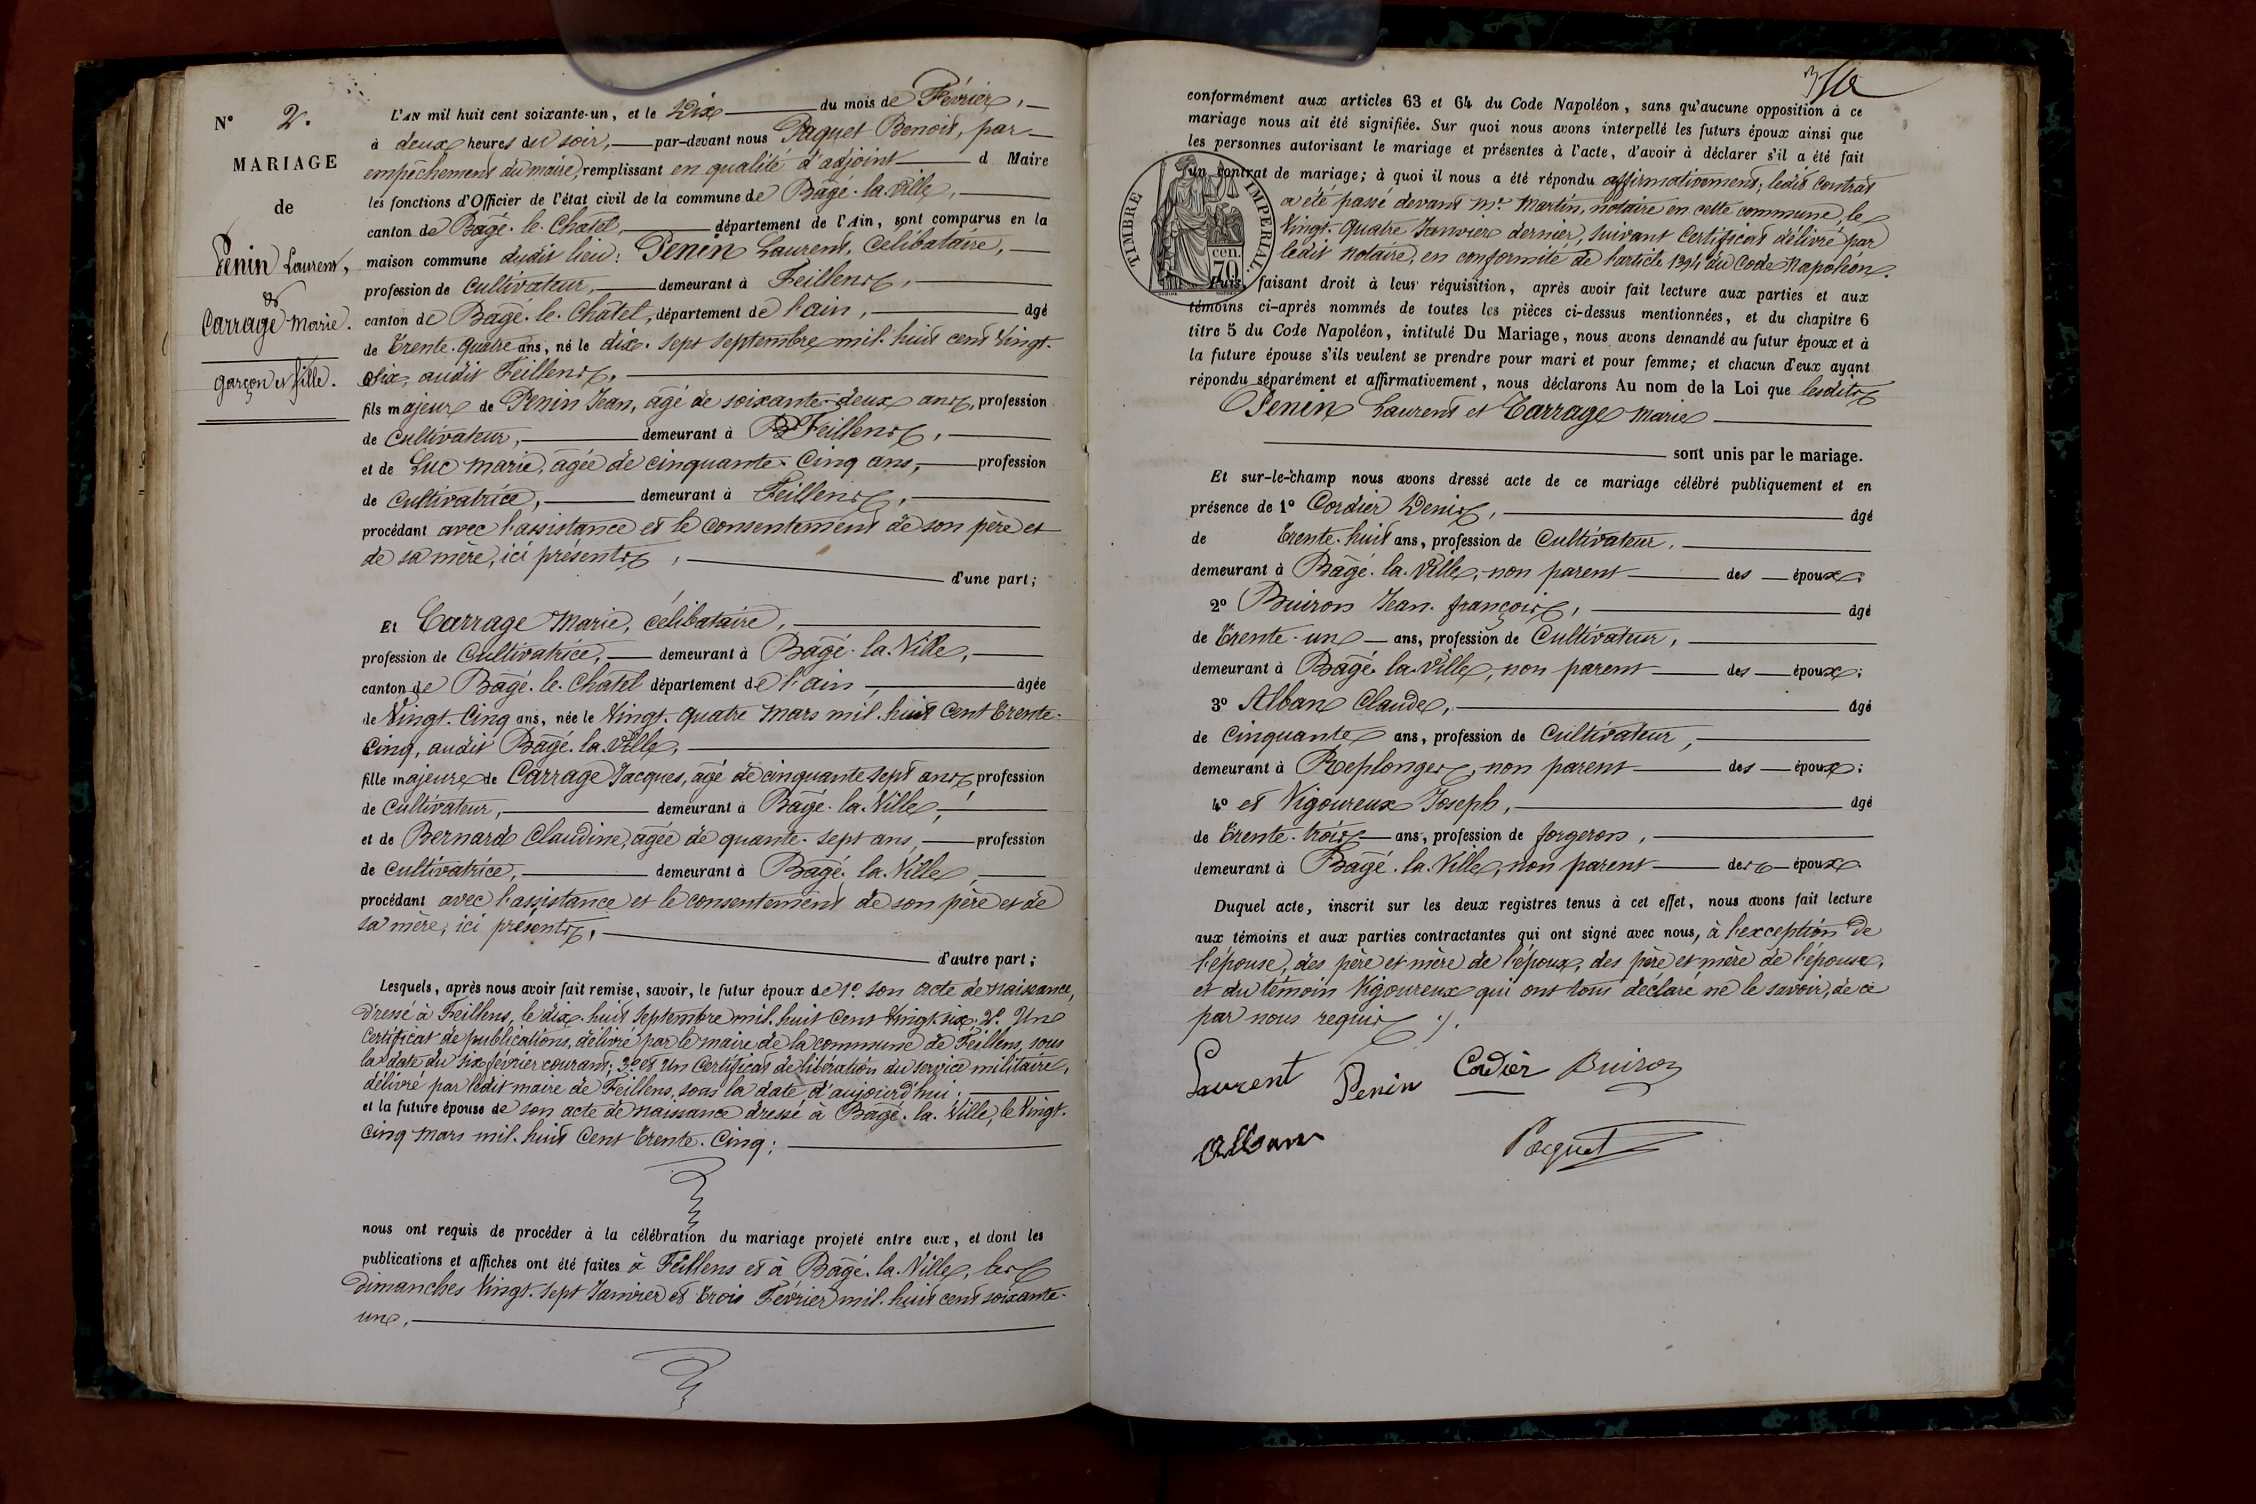 N° 2.
MARIAGE
de
Penin Laurent,
&
Carrage Marie.
garçon et fille.
L'AN mil huit cent soixante-un, et le Dix du mois de Février,
à deux heures du soir, par-devant nous Paquet Benoit, par
empêchement du maire, remplissant en qualité d'adjoint d Maire
les fonctions d'Officier de l'état civil de la commune de Bâgé-la-Ville,
canton de Bâgé-le-Châtel, département de l'Ain, sont comparus en la
maison commune dudit lieu: Penin Laurent, Célibataire,
profession de Cultivateur, demeurant à Feillens,
canton de Bâgé-le-Châtel, département de l'ain, âgé
de Trente-quatre ans, né le dix-sept septembre mil-huit cent vingt-
six, audit Feillens,
fils majeur de Penin Jean, âgé de soixante-deux ans, profession
de Cultivateur, demeurant à Feillens,
et de Luc Marie, âgée de cinquante-Cinq ans, profession
de Cultivatrice, demeurant à Feillens,
procédant avec l'assistance et le consentement de son père et
de sa mère, ici présents,
d'une part;
Et Carrage Marie, célibataire,
profession de Cultivatrice, demeurant à Bâgé-la-Ville,
canton de Bâgé-le-Châtel département de l'ain, âgée
de Vingt-Cinq ans, née le Vingt-quatre Mars mil-huit Cent Trente-
Cinq, audit Bâgé-la-Ville,
fille majeure de Carrage Jacques, âgé de cinquante sept ans, profession
de Cultivateur, demeurant à Bâgé-la-Ville,
et de Bernard Claudine, âgée de quante-sept ans, profession
de Cultivatrice, demeurant à Bâgé-la-Ville,
procédant avec l'assistance et le consentement de son père et de
sa mère, ici présents,
d'autre part;
Lesquels, après nous avoir fait remise, savoir, le futur époux de 1° son acte de naissance,
dressé à Feillens, le dix-huit Septembre mil-huit Cent Vingt-six; 2° Un
Certificat de publications, délivré par le maire de la commune de Feillens, sous
la date du six février courant; 3° et Un Certificat de libération du service militaire,
délivré par ledit maire de Feillens, sous la date d'aujourd'hui;
et la future épouse de son acte de naissance dressé à Bâgé-la-Ville, le Vingt-
Cinq Mars mil-huit Cent Trente-Cinq;
nous ont requis de procéder à la célébration du mariage projeté entre eux, et dont les
publications et affiches ont été faites à Feillens et à Bâgé-la-Ville, les
dimanches Vingt-sept Janvier et trois Février mil-huit cent soixante-
un,
conformément aux articles 63 et 64 du Code Napoléon, sans qu'aucune opposition à ce
mariage nous ait été signifiée. Sur quoi nous avons interpellé les futurs époux ainsi que
les personnes autorisant le mariage et présentes à l'acte, d'avoir à déclarer s'il a été fait
un contrat de mariage; à quoi il nous a été répondu affirmativement; ledit Contrat
a été passé devant Me Martin, notaire en cette commune, le
Vingt-quatre Janvier dernier, suivant Certificat délivré par
ledit notaire, en conformité de l'article 1394 du Code Napoléon.
TIMBRE IMPERIAL
70 cen.
Puis, faisant droit à leur réquisition, après avoir fait lecture aux parties et aux
témoins ci-après nommés de toutes les pièces ci-dessus mentionnées, et du chapitre 6
titre 5 du Code Napoléon, intitulé Du Mariage, nous avons demandé au futur époux et à
la future épouse s'ils veulent se prendre pour mari et pour femme; et chacun d'eux ayant
répondu séparément et affirmativement, nous déclarons Au nom de la Loi que lesdits
Penin Laurent et Carrage Marie
sont unis par le mariage.
Et sur-le-champ nous avons dressé acte de ce mariage célébré publiquement et en
présence de 1° Cordier Denis, âgé
de Trente-huit ans, profession de Cultivateur,
demeurant à Bâgé-la-Ville, non parent des époux;
2° Buiron Jean-françois, âgé
de Trente-un ans, profession de Cultivateur,
demeurant à Bâgé-la-Ville, non parent des époux;
3° Alban Claude, âgé
de Cinquante ans, profession de Cultivateur,
demeurant à Replonges, non parent des époux;
4° et Vigoureux Joseph, âgé
de Trente-trois ans, profession de forgeron,
demeurant à Bâgé-la-Ville, non parent des époux.
Duquel acte, inscrit sur les deux registres tenus à cet effet, nous avons fait lecture
aux témoins et aux parties contractantes qui ont signé avec nous, à l'exception de
l'épouse, des père et mère de l'époux, des père et mère de l'épouse,
et du témoin Vigoureux qui ont tous déclaré ne le savoir, de ce
par nous requis ./.
Laurent Penin Cordier Buiron
Alban Paquet